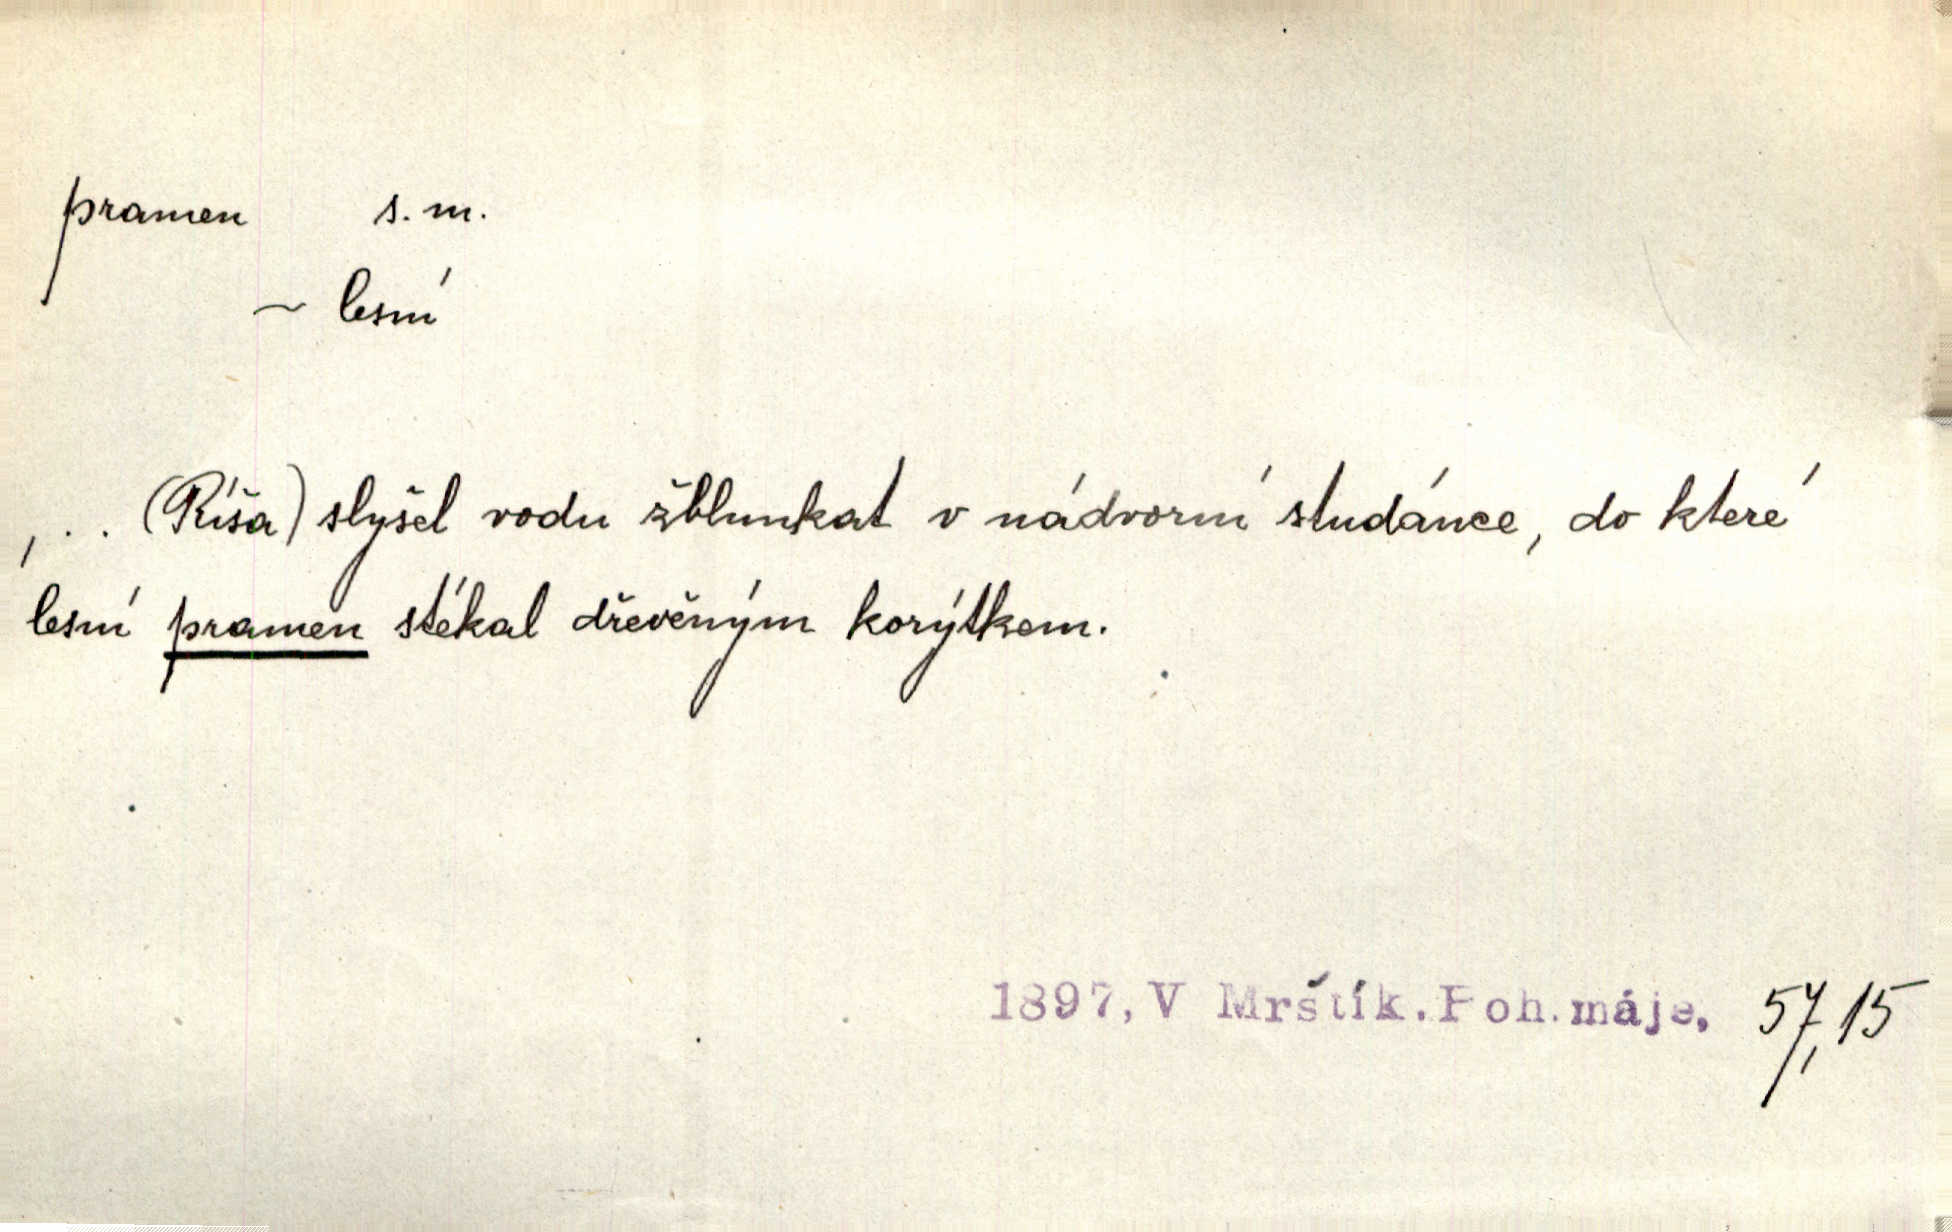 pramen s. m.
~ lesní
, . . (Ríša) slyšel vodu žblunkat v nádvorní studánce, do které
lesní pramen stékal dřevěným korýtkem.
1897, V Mrštík. Poh. máje, 57, 15